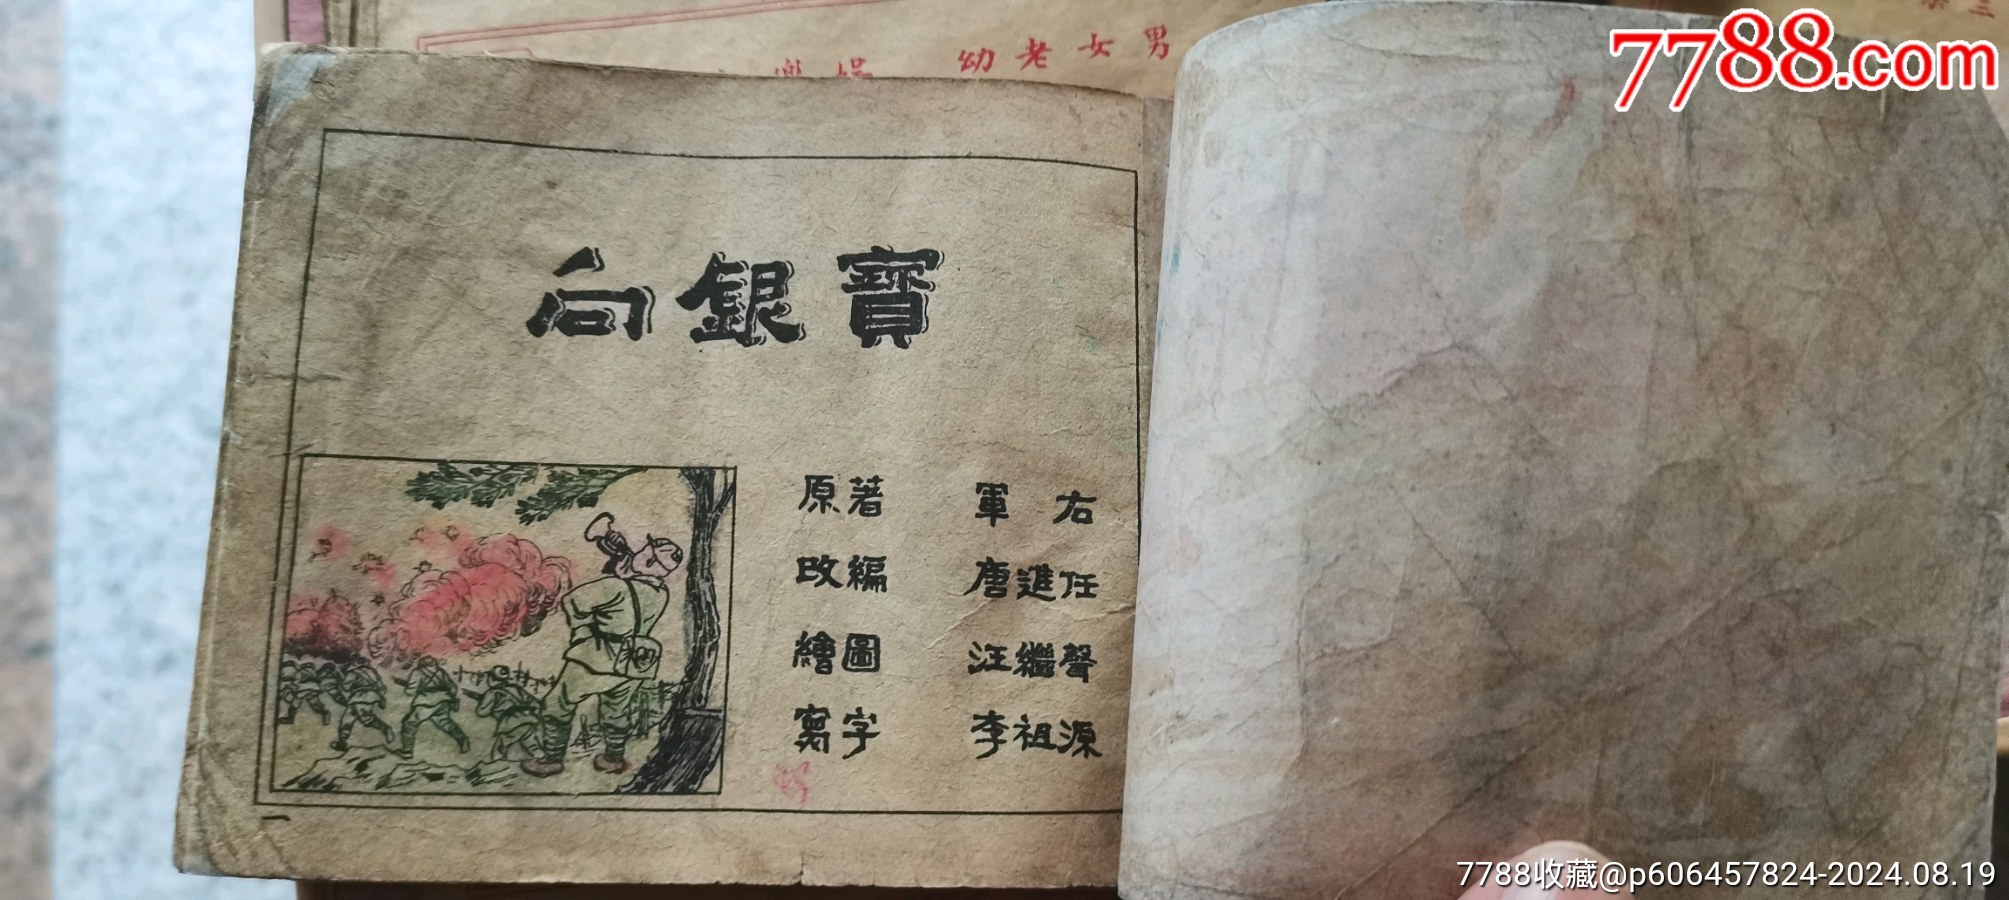 7788.com
幼老女男
向銀寶
原著 軍右
改編 唐進任
繪圖 汪繼聲
寫字 李祖源
一
7788收藏@p606457824-2024.08.19